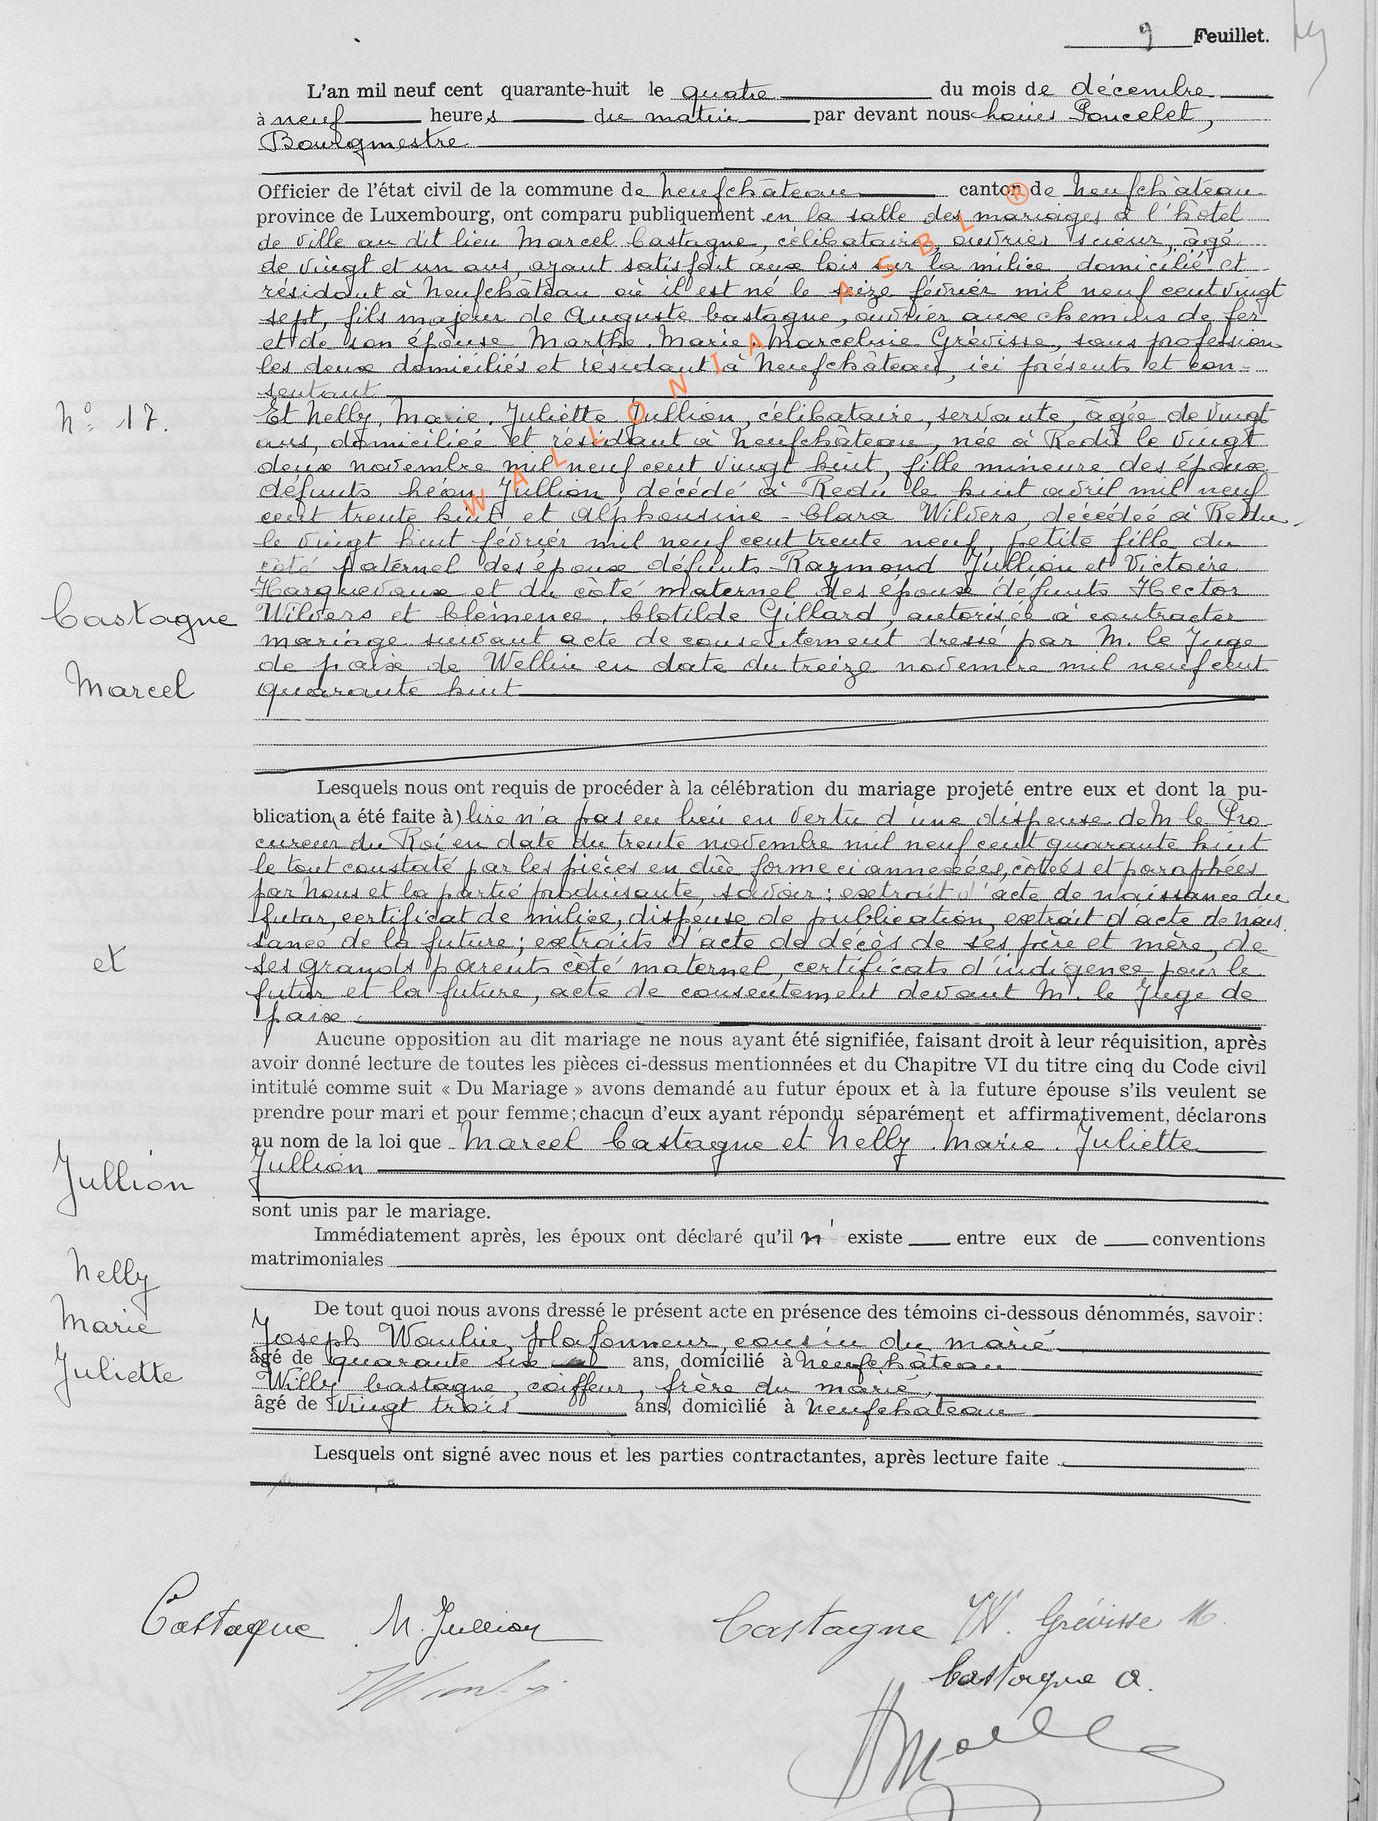 9 Feuillet.
L'an mil neuf cent quarante-huit le quatre du mois de décembre
à neuf heures du matin par devant nous Louis Poncelet,
Bourgmestre
Officier de l'état civil de la commune de Neufchâteau canton de Neufchâteau
province de Luxembourg, ont comparu publiquement en la salle des mariages à l'hôtel
de ville au dit lieu Marcel Castagne, célibataire, ouvrier scieur, âgé
de vingt et un ans, ayant satisfait aux lois sur la milice, domicilié et
résidant à Neufchâteau où il est né le seize février mil neuf cent vingt
sept, fils majeur de Auguste Castagne, ouvrier aux chemins de fer
et de son épouse Marthe. Marie. Marceline Grévisse, sans profession
les deux domiciliés et résidant à Neufchâteau, ici présents et con-
sentant
N° 17.
Et Nelly, Marie, Juliette Jullion, célibataire, servante, âgée de vingt
ans, domiciliée et résidant à Neufchâteau, née à Redu le vingt
deux novembre mil neuf cent vingt huit, fille mineure des époux
défunts Léon Jullion, décédé à Redu le huit avril mil neuf
cent trente huit et Alphonsine - Clara Wilvers, décédée à Redu
le vingt huit février mil neuf cent trente neuf, petite fille du
côté paternel des époux défunts Raymond Jullion et Victoire
Harquevaux et du côté maternel des époux défunts Hector
Wilvers et Clémence. Clotilde Gillard, autorisée à contracter
mariage suivant acte de consentement dressé par M. le Juge
de paix de Wellin en date du treize novembre mil neuf cent
quarante huit
Castagne
Marcel
Lesquels nous ont requis de procéder à la célébration du mariage projeté entre eux et dont la pu-
blication (a été faite à) lire n'a pas eu lieu en vertu d'une dispense de M le Pro
cureur du Roi en date du trente novembre mil neuf cent quarante huit
le tout constaté par les pièces en due forme ci annexées, cotées et paraphées
par nous et la partie produisante, savoir: extrait d'acte de naissance du
futur, certificat de milice, dispense de publication, extrait d'acte de nais
sance de la future; extraits d'acte de décès de ses père et mère, de
ses grands parents côté maternel, certificats d'indigence pour le
futur et la future, acte de consentement devant M. le Juge de
paix.
et
Aucune opposition au dit mariage ne nous ayant été signifiée, faisant droit à leur réquisition, après
avoir donné lecture de toutes les pièces ci-dessus mentionnées et du Chapitre VI du titre cinq du Code civil
intitulé comme suit « Du Mariage » avons demandé au futur époux et à la future épouse s'ils veulent se
prendre pour mari et pour femme; chacun d'eux ayant répondu séparément et affirmativement, déclarons
au nom de la loi que Marcel Castagne et Nelly. Marie. Juliette
Jullion
Jullion
Nelly
Marie
Juliette
sont unis par le mariage.
Immédiatement après, les époux ont déclaré qu'il n' existe entre eux de conventions
matrimoniales
De tout quoi nous avons dressé le présent acte en présence des témoins ci-dessous dénommés, savoir:
Joseph Waulin, plafonneur, cousin du marié
âgé de quarante six ans, domicilié à Neufchâteau
Willy Castagne, coiffeur, frère du marié,
âgé de vingt trois ans, domicilié à Neufchâteau
Lesquels ont signé avec nous et les parties contractantes, après lecture faite
Castagne N. Jullion Castagne W. Grévisse M.
Castagne A.
WALLONIA ASBL ®